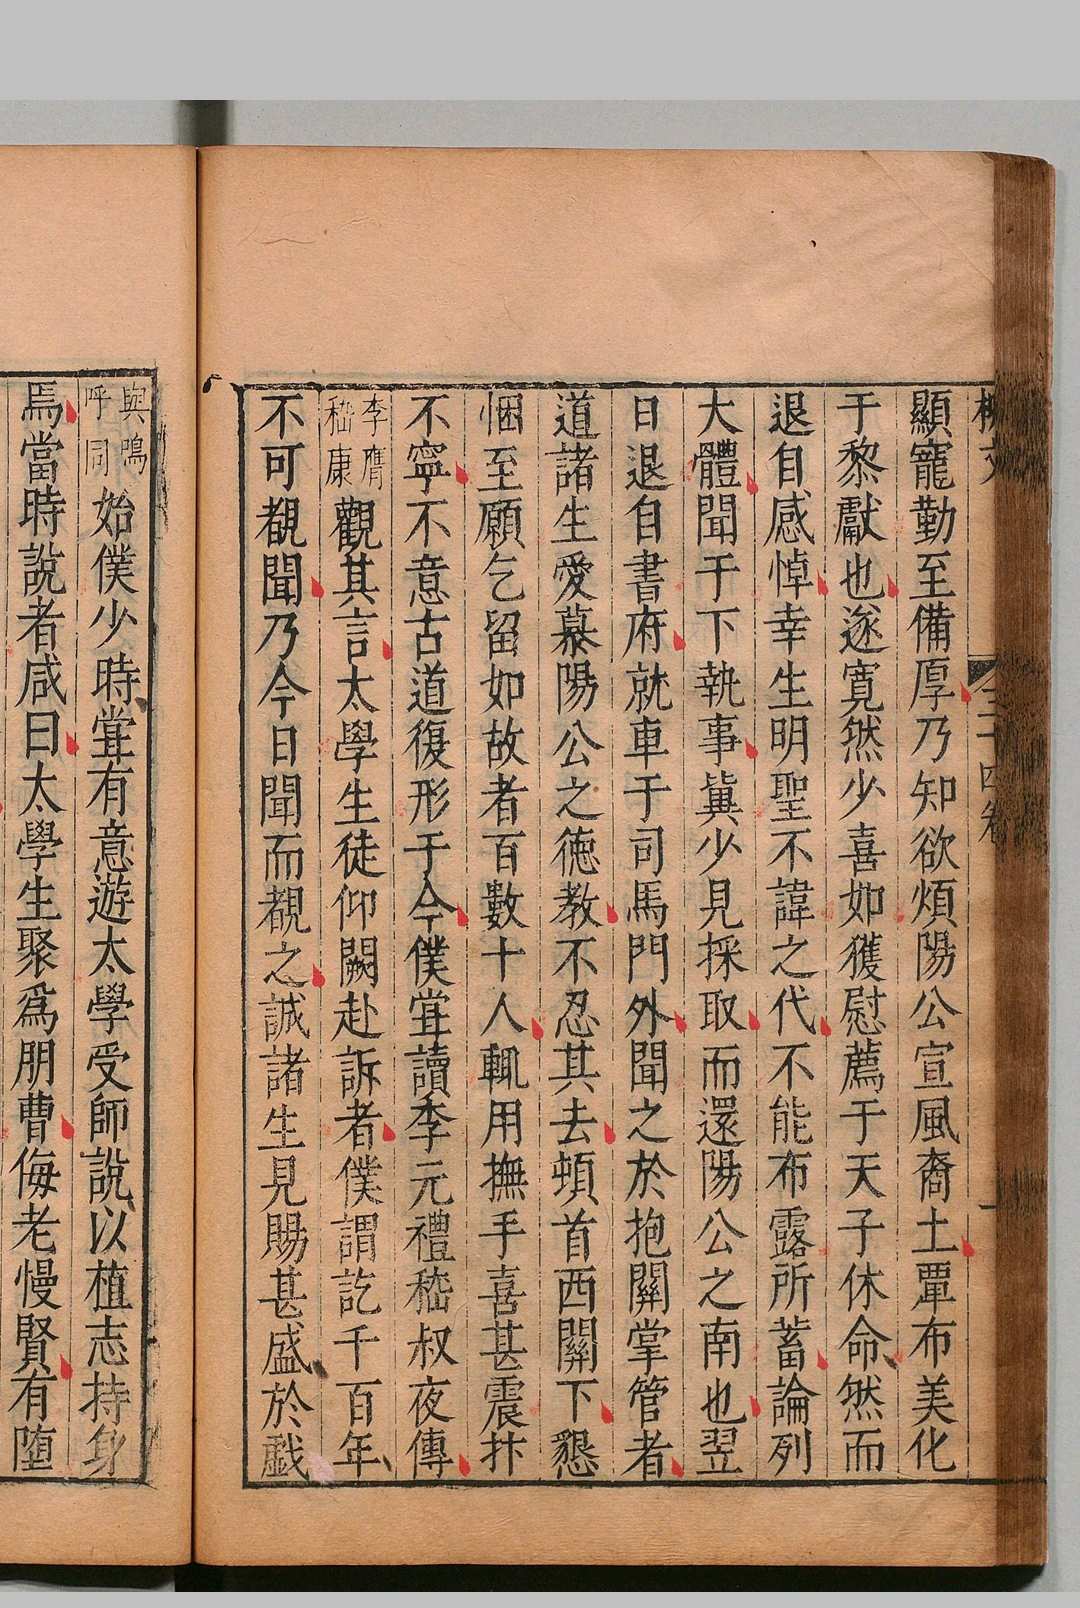 柳文 三十四卷 一
顯寵勤至備厚乃知欲煩陽公宣風裔土覃布美化
于黎獻也遂寛然少喜如獲慰薦于天子休命然而
退自感悼幸生明聖不諱之代不能布露所蓄論列
大體聞于下執事冀少見採取而還陽公之南也翌
日退自書府就車于司馬門外聞之於抱關掌管者
道諸生愛慕陽公之徳教不忍其去頓首西闕下懇
悃至願乞留如故者百數十人輒用撫手喜甚震抃
不寧不意古道復形于今僕甞讀李元禮嵇叔夜傳
李膺嵇康觀其言太學生徒仰闕赴訴者僕謂訖千百年
不可覩聞乃今日聞而覩之誠諸生見賜甚盛於戯
與嗚呼同始僕少時甞有意遊太學受師說以植志持身
焉當時說者咸曰太學生聚爲朋曹侮老慢賢有堕